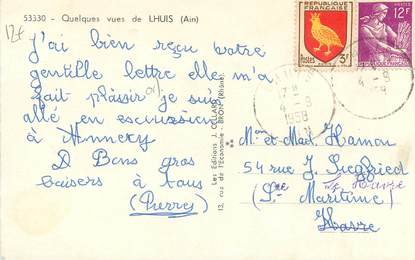 53330 - Quelques vues de LHUIS (Ain)
12f
J'ai bien reçu votre
gentille lettre elle m'a
fait plaisir je suis
allé en excursion
à Annecy
Bons gros
baisers à tous
(Pierre)
Les Editions J. CELLARD
13, rue de l'Economie - BRON (Rhône)
REPUBLIQUE FRANÇAISE
POSTES
3f
12F
4-8
1958
AIN
4-8
1958
Mr et Mad. Hamon
54 rue J. Siegfried
Le Havre
(Sne Maritime)
Havre